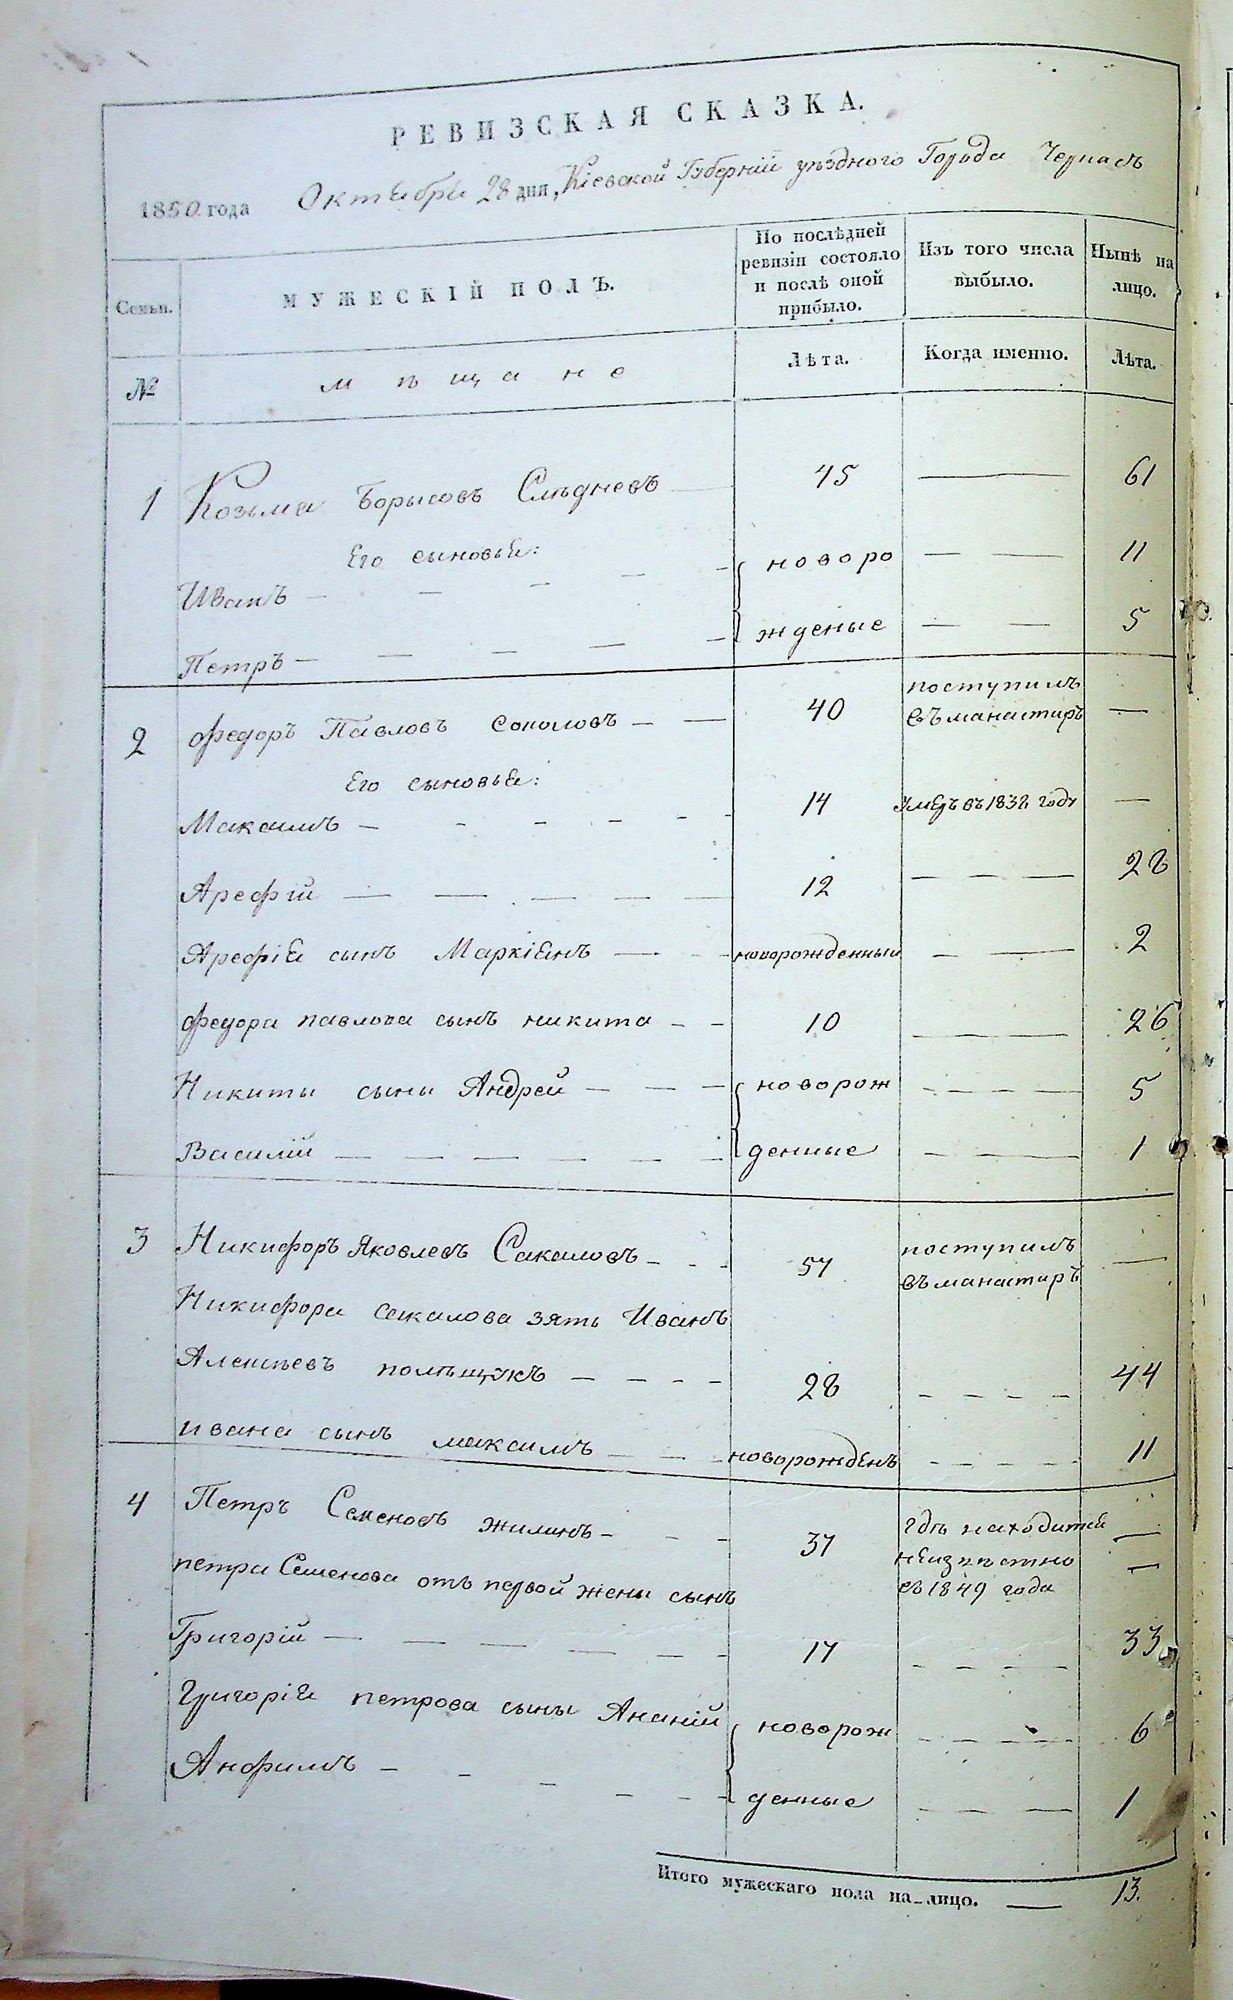 РЕВИЗСКАЯ СКАЗКА.
1850 года Октября 28 дня, Кіевской Губерніи уѣзднаго Города Черкасъ
Семьи.
МУЖЕСКІЙ ПОЛЪ.
По послѣдней ревизіи состояло и послѣ оной прибыло.
Изъ того числа выбыло.
Нынѣ на лицо.
№
мѣщане
Лѣта.
Когда именно.
Лѣта.
1 Козьма Борисовъ Слѣдневъ 45 — 61
Его сыновья:
Иванъ новоро — 11
Петръ жденые — 5
2 Федоръ Павловъ Соколовъ 40 поступилъ въ манастиръ —
Его сыновья:
Максимъ 14 умеръ въ 1838 году —
Арефій 12 — 28
Арефія сынъ Маркіянъ новорожденный — 2
Федора павлова сынъ никита 10 — 26
Никиты сыны Андрей новорож — 5
Василій денные — 1
3 Никифоръ Яковлевъ Сакаловъ 57 поступилъ въ манастиръ —
Никифора сакалова зять Иванъ
Алексѣевъ полѣщукъ 28 — 44
ивана сынъ максимъ новорожденъ — 11
4 Петръ Семеновъ жилинъ 37 гдѣ находится неизвѣстно съ 1849 года —
петра Семенова отъ первой жены сынъ —
Григорій 17 — 33
Григорія петрова сыны Ананій новорож — 6
Анфимъ денные — 1
Итого мужескаго пола на-лицо. — 13.